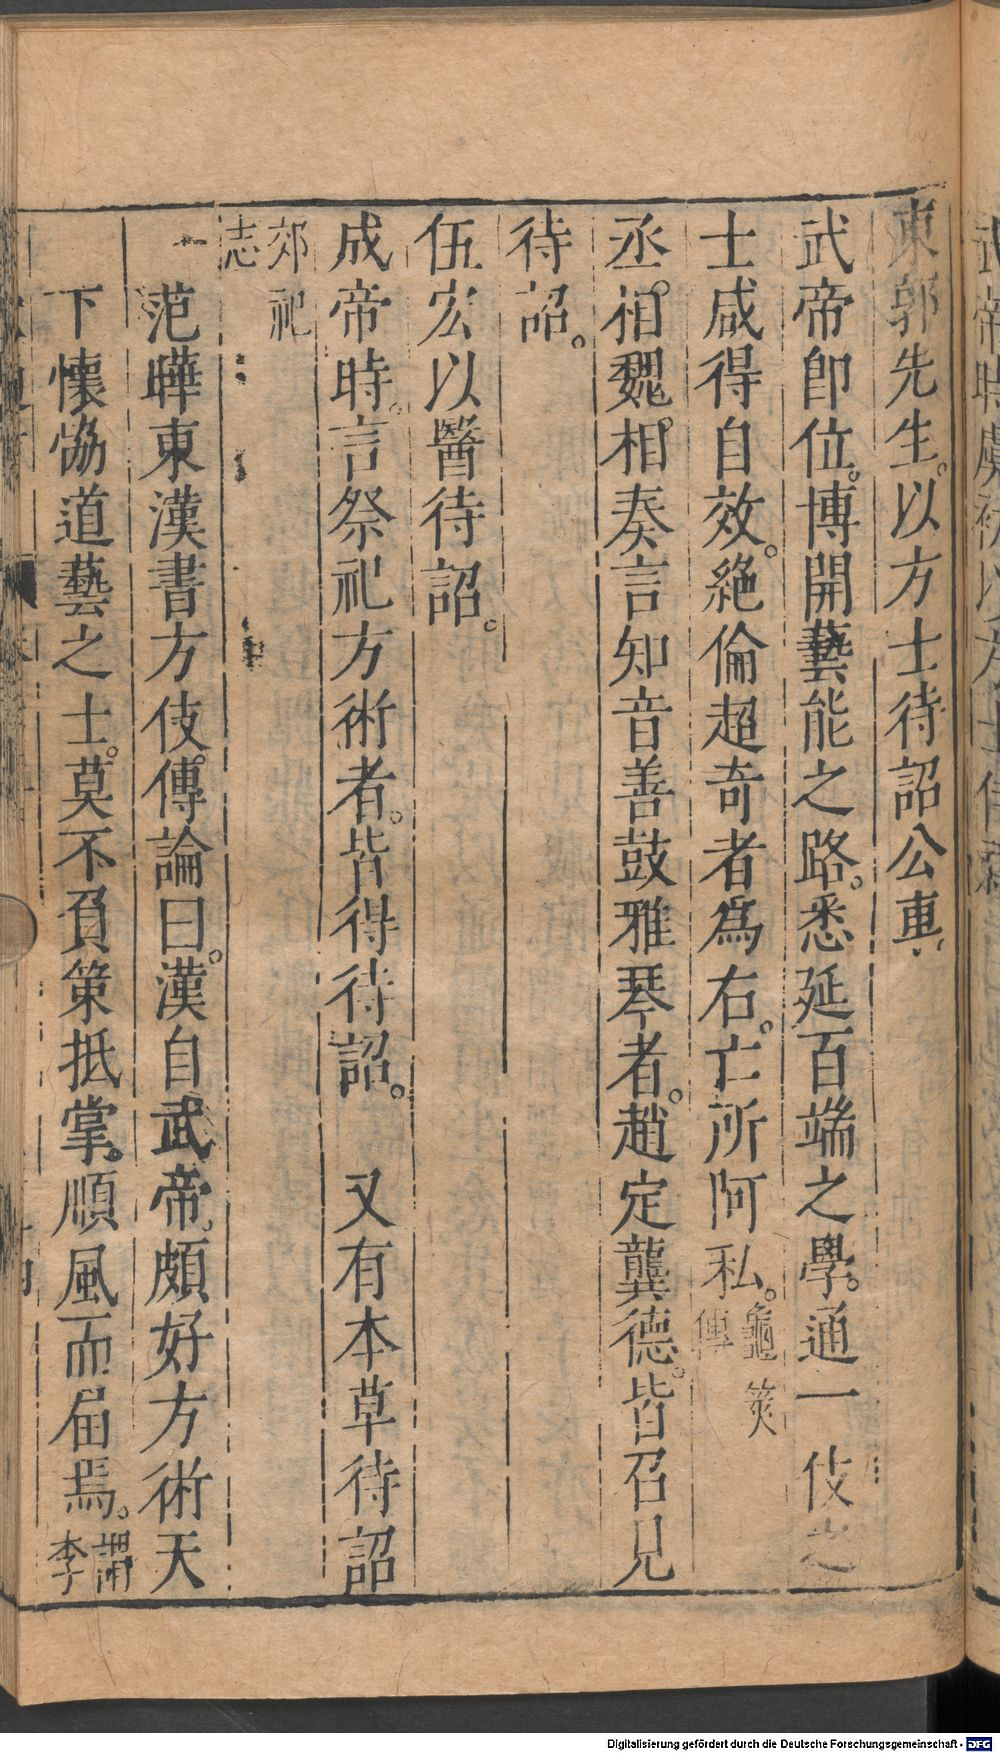 東郭先生。以方士待詔公車、
武帝卽位。博開藝能之路。悉延百端之學。通一伎之
士咸得自效。絶倫超奇者爲右。亡所阿私。龜筴傳
丞。相魏。相奏言知音善鼓雅琴者。趙定龔德。皆召見
待詔。
伍宏以醫待詔。
成帝時。言祭祀方術者。皆得待詔。 又有本草待詔
郊祀志
范曄東漢書方伎傳論曰。漢自武帝。頗好方術天
下懷恊道藝之士。莫不負策抵掌。順風而届焉。謂李
Digitalisierung gefördert durch die Deutsche Forschungsgemeinschaft - DFG